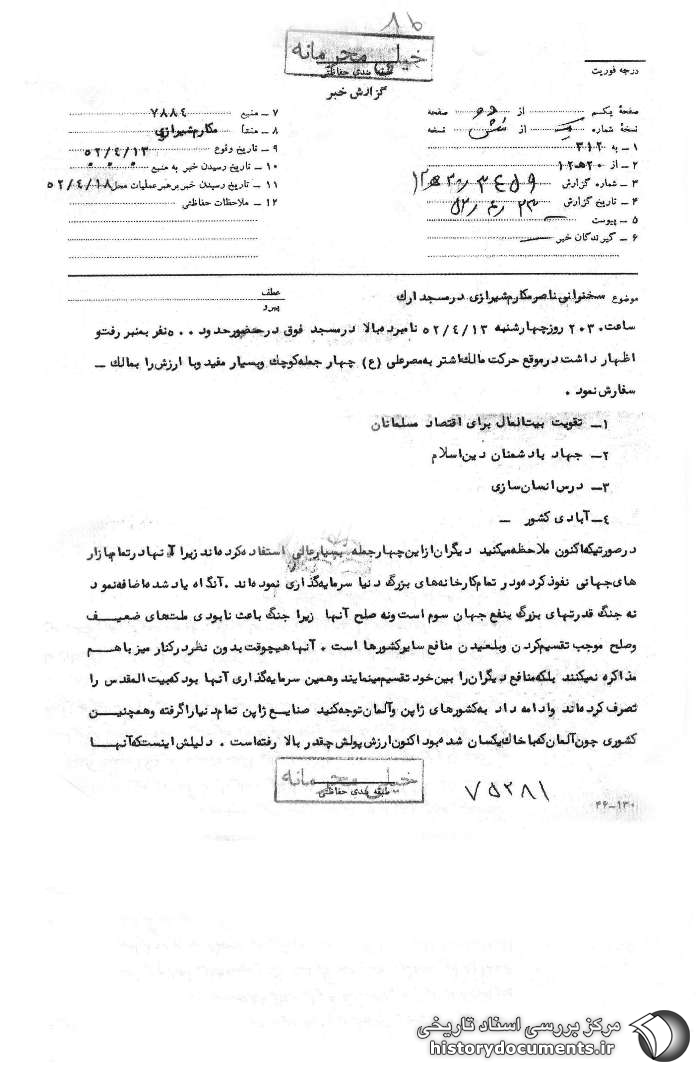 ۱۶
خیلی محرمانه
طبقه بندی حفاظتی
گزارش خبر
درجه فوریت
صفحهٔ یکم از دو صفحه
نسخهٔ شماره یک از شش نسخه
۱ ـ به ۳۱۲
۲ ـ از ۲۰هـ۱۲
۳ ـ شماره گزارش
۴ ـ تاریخ گزارش ۵۲٫۴٫۲۳
۵ ـ پیوست ـ
۶ ـ گیرندگان خبر ـ
۷ ـ منبع ۷۸۸۴
۸ ـ منشأ مکارم شیرازی
۹ ـ تاریخ وقوع ۵۲/۴/۱۳
۱۰ ـ تاریخ رسیدن خبر به منبع
۱۱ ـ تاریخ رسیدن خبر برهبر عملیات محل ۵۲/۴/۱۸
۱۲ ـ ملاحظات حفاظتی
موضوع سخنرانی ناصر مکارم شیرازی در مسجد ارک
عطف
پیرو
ساعت ۲۰۳۰ روز چهارشنبه ۵۲/۴/۱۳ نامبرده بالا در مسجد فوق در حضور حدود ۵۰۰ نفر بمنبر رفت و
اظهار داشت در موقع حرکت مالک اشتر به مصر علی (ع) چهار جمله کوچک و بسیار مفید و با ارزش را بمالک ـ
سفارش نمود .
۱ـ تقویت بیت المال برای اقتصاد مسلمانان
۲ـ جهاد با دشمنان دین اسلام
۳ـ درس انسان سازی
۴ـ آبادی کشور ـ
در صورتیکه اکنون ملاحظه میکنید دیگران از این چهار جمله بسیار عالی استفاده کرده اند زیرا آنها در تمام بازار
های جهانی نفوذ کرده و در تمام کارخانه های بزرگ دنیا سرمایه گذاری نموده اند . آنگاه یاد شده اضافه نمود
نه جنگ قدرتهای بزرگ بنفع جهان سوم است و نه صلح آنها زیرا جنگ باعث نابودی ملت های ضعیف
و صلح موجب تقسیم کردن و بلعیدن منافع سایر کشورها است . آنها هیچوقت بدون نظر در کنار میز با هم
مذاکره نمیکنند بلکه منافع دیگران را بین خود تقسیم مینمایند و همین سرمایه گذاری آنها بود که بیت المقدس را
تصرف کرده اند و ادامه داد به کشورهای ژاپن و آلمان توجه کنید صنایع ژاپن تمام دنیا را گرفته و همچنین
کشوری چون آلمان که با خاک یکسان شده بود اکنون ارزش پولش چقدر بالا رفته است . دلیلش اینست که آنها
خیلی محرمانه
طبقه بندی حفاظتی
۷۵۲۸۱
۴۶-۱۳۰
مرکز بررسی اسناد تاریخی
historydocuments.ir